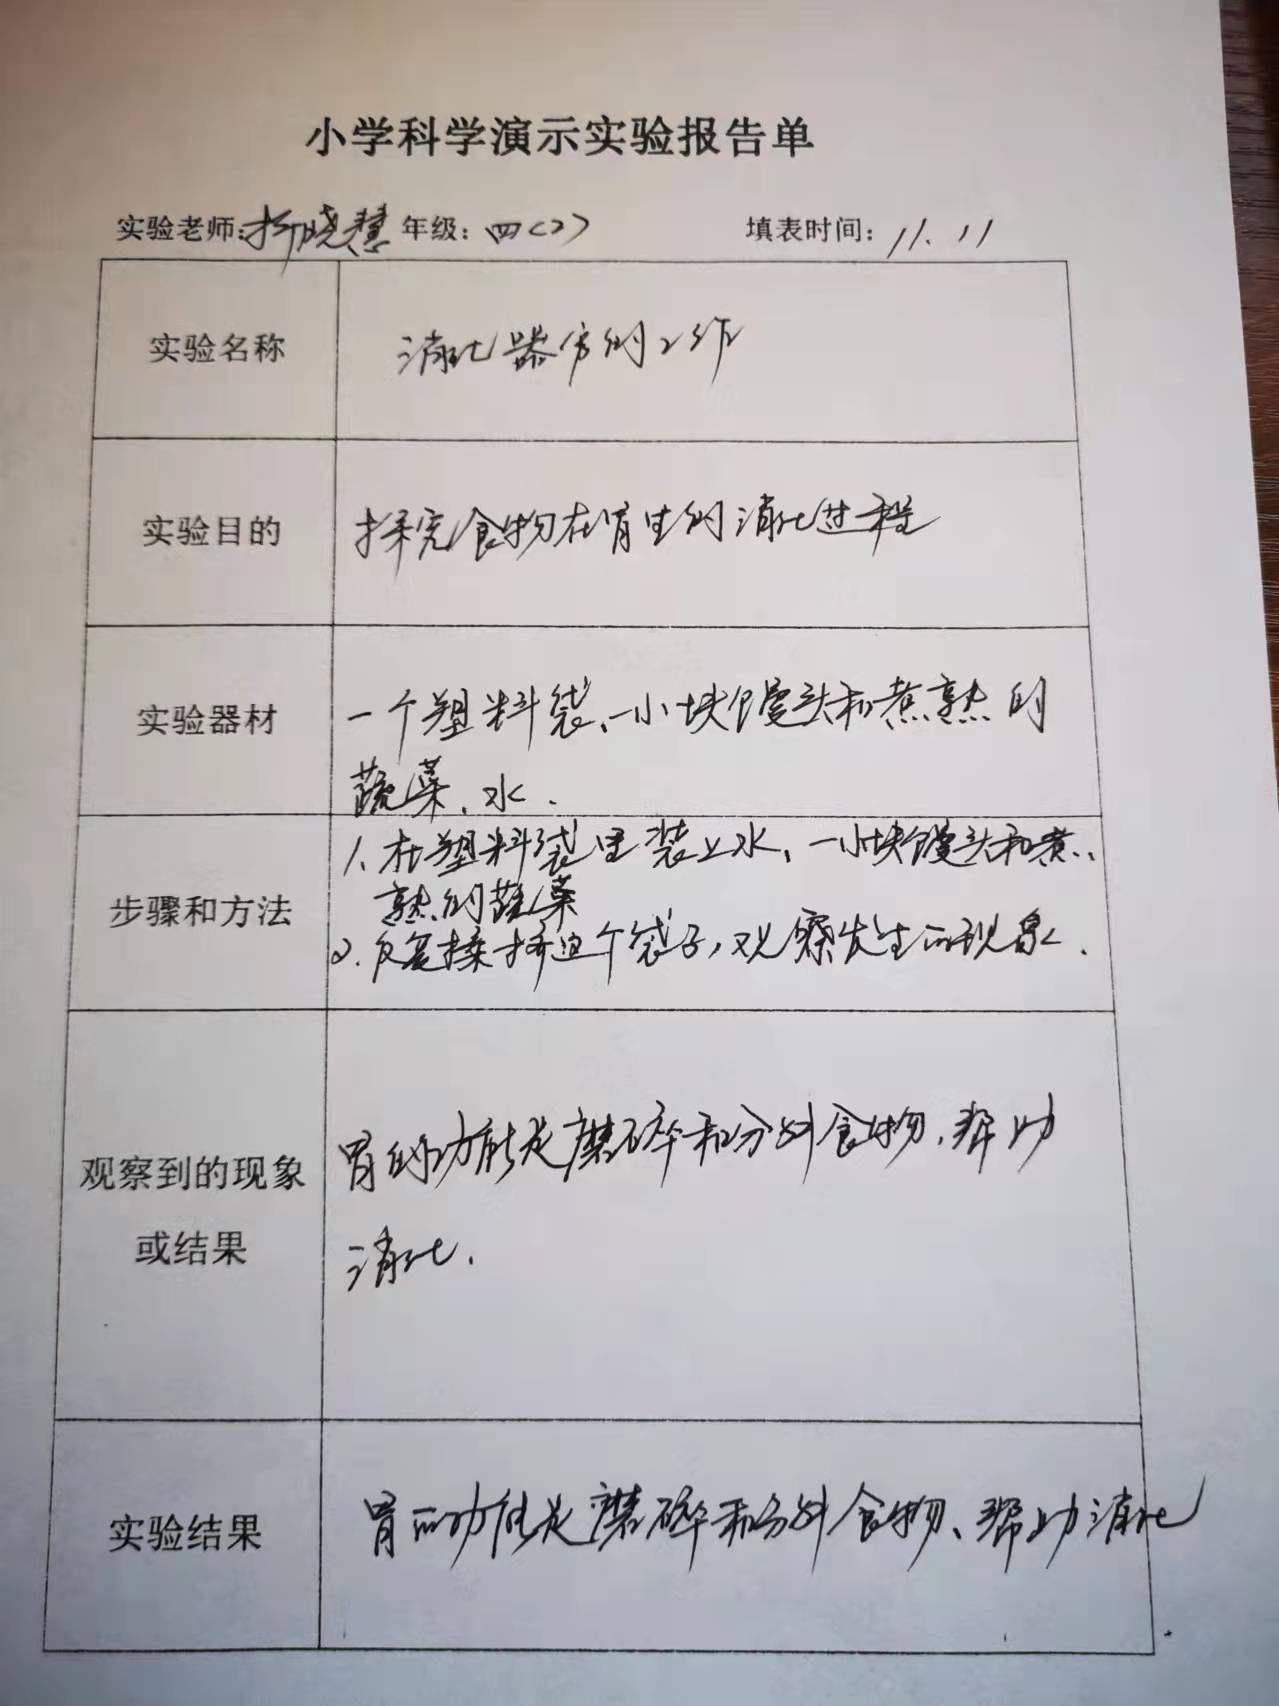 小学科学演示实验报告单
实验老师:晓慧 年级:四(2) 填表时间:11.11
实验名称 消化器官的工作
实验目的 探究食物在胃里的消化过程
实验器材 一个塑料袋、一小块馒头和煮熟的
蔬菜、水.
步骤和方法 1、在塑料袋里装上水,一小块馒头和煮
熟的蔬菜
2.反复揉挤这个袋子,观察发生的现象.
观察到的现象
或结果
胃的功能是磨碎和分解食物,帮助
消化.
实验结果 胃的功能是磨碎和分解食物、帮助消化